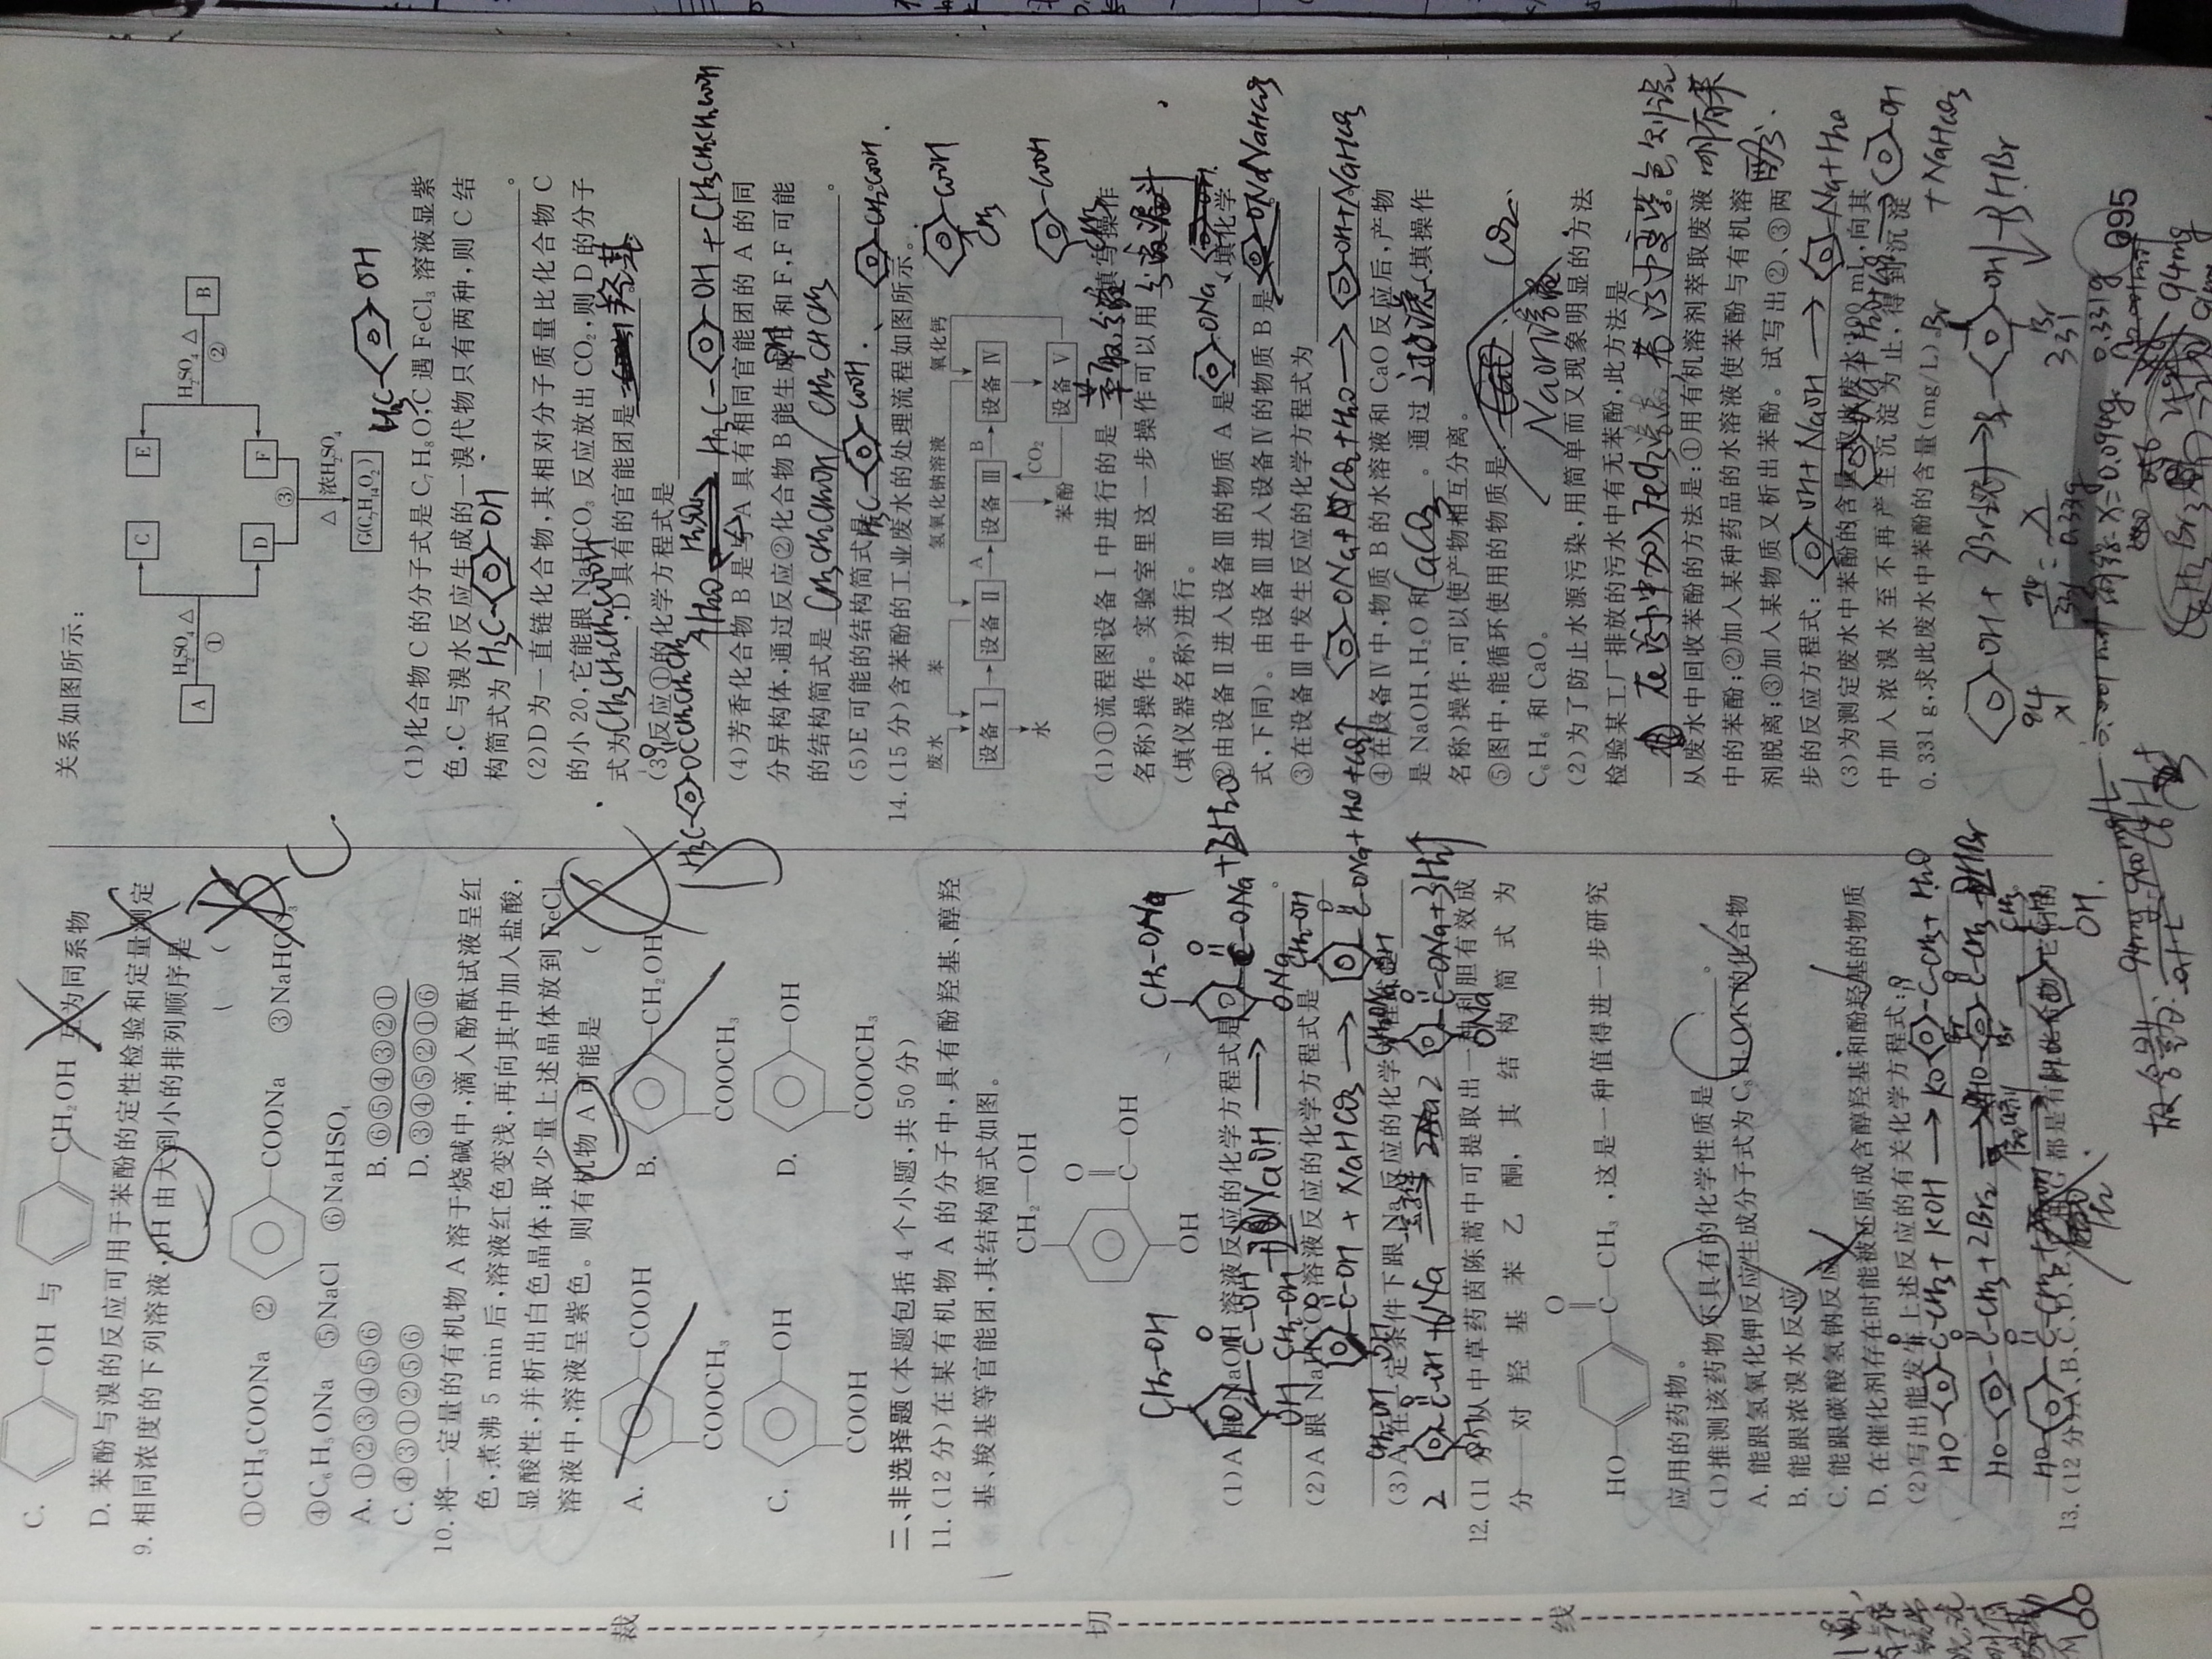 C. —OH 与 —CH₂OH 互为同系物
D. 苯酚与溴的反应可用于苯酚的定性检验和定量测定
9. 相同浓度的下列溶液,pH 由大到小的排列顺序是
( )
C
①CH₃COONa ② —COONa ③NaHCO₃
④C₆H₅ONa ⑤NaCl ⑥NaHSO₄
A. ①②③④⑤⑥ B. ⑥⑤④③②①
C. ④③①②⑤⑥ D. ③④⑤②①⑥
10. 将一定量的有机物 A 溶于烧碱中,滴入酚酞试液呈红
色,煮沸 5 min 后,溶液红色变浅,再向其中加入盐酸,
显酸性,并析出白色晶体;取少量上述晶体放到 FeCl₃
溶液中,溶液呈紫色。则有机物 A 可能是 ( )
A. —COOH B. —CH₂OH
COOCH₃ COOCH₃
D
C. —OH D. —OH
COOH COOCH₃
二、非选择题(本题包括 4 个小题,共 50 分)
11. (12 分)在某有机物 A 的分子中,具有酚羟基、醇羟
基、羧基等官能团,其结构简式如图。
CH₂—OH
O
C—OH
OH
(1)A 跟 NaOH 溶液反应的化学方程式是
(2)A 跟 NaHCO₃ 溶液反应的化学方程式是
(3)A 在一定条件下跟 Na 反应的化学方程式是
12. (11 分)从中草药茵陈蒿中可提取出一种利胆有效成
分——对羟基苯乙酮,其结构简式为
O
HO— —C—CH₃ ,这是一种值得进一步研究
应用的药物。
(1)推测该药物不具有的化学性质是 C 。
A. 能跟氢氧化钾反应生成分子式为 C₈H₇O₂K 的化合物
B. 能跟浓溴水反应
C. 能跟碳酸氢钠反应
D. 在催化剂存在时能被还原成含醇羟基和酚羟基的物质
(2)写出能发生上述反应的有关化学方程式:
HO— —C—CH₃ + KOH → KO— —C—CH₃ + H₂O
HO— —C—CH₃ + 2Br₂ → HO— —C—CH₃ + 2HBr
13. (12 分)A、B、C、D、E、F 和 G 都是有机化合物,它们的
关系如图所示:
C E
A H₂SO₄ △ ① H₂SO₄ △ ② B
D F
③
△ 浓H₂SO₄
G(C₇H₁₄O₂)
H₃C— —OH
(1)化合物 C 的分子式是 C₇H₈O,C 遇 FeCl₃ 溶液显紫
色,C 与溴水反应生成的一溴代物只有两种,则 C 结
构简式为 H₃C— —OH 。
(2)D 为一直链化合物,其相对分子质量比化合物 C
的小 20,它能跟 NaHCO₃ 反应放出 CO₂,则 D 的分子
式为 CH₃CH₂CH₂COOH ,D 具有的官能团是 羟基
(3)反应①的化学方程式是
H₃C— —OCCH₂CH₂CH₃ + H₂O H₂SO₄ △ H₃C— —OH + CH₃CH₂CH₂COOH
(4)芳香化合物 B 是与 A 具有相同官能团的 A 的同
分异构体,通过反应②化合物 B 能生成 E 和 F,F 可能
OH
的结构简式是 CH₃CH₂CH₂OH / CH₃CHCH₃ 。
(5)E 可能的结构简式是 H₃C— —COOH 、 —CH₂COOH .
—COOH
CH₃
—COOH
CH₃
14. (15 分)含苯酚的工业废水的处理流程如图所示。
废水 苯 氢氧化钠溶液 氧化钙
设备 Ⅰ 设备 Ⅱ A 设备 Ⅲ B 设备 Ⅳ
水 苯酚 CO₂ 设备 Ⅴ
(1)①流程图设备Ⅰ中进行的是 萃取,分液 填写操作
名称)操作。实验室里这一步操作可以用 分液漏斗
(填仪器名称)进行。
②由设备Ⅱ进入设备Ⅲ的物质 A 是 —ONa (填化学
式,下同)。由设备Ⅲ进入设备Ⅳ的物质 B 是 NaHCO₃
③在设备Ⅲ中发生反应的化学方程式为
—ONa + CO₂ + H₂O → —OH + NaHCO₃
④在设备Ⅳ中,物质 B 的水溶液和 CaO 反应后,产物
是 NaOH、H₂O 和 CaCO₃ 。通过 过滤 (填操作
名称)操作,可以使产物相互分离。
⑤图中,能循环使用的物质是: NaOH溶液 、 CO₂ 、
C₆H₆ 和 CaO。
(2)为了防止水源污染,用简单而又现象明显的方法
检验某工厂排放的污水中有无苯酚,此方法是
在污水中加入FeCl₃溶液,若污水变紫色,则说
明有苯酚.
从废水中回收苯酚的方法是:①用有机溶剂萃取废液
中的苯酚;②加入某种药品的水溶液使苯酚与有机溶
剂脱离;③加入某物质又析出苯酚。试写出②、③两
步的反应方程式: —OH + NaOH → —Na + H₂O
(3)为测定废水中苯酚的含量,取此废水 100 mL,向其
中加入浓溴水至不再产生沉淀为止,得到沉淀
0.331 g,求此废水中苯酚的含量(mg/L)。
+ NaHCO₃
94 331
x 0.331g
x=0.094g
94mg
095
裁
切
线